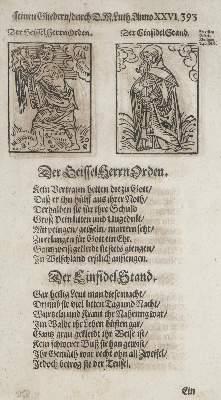 seinen Gliedern/durch D.M.Luth.Anno XXVI. 393
Der Geissel Herrn Orden.
Der Einsidel Stand.
Der Geissel Herrn Orden.
Kein Vertrawn hetten die zu Gott/
Das er ihn hülff aus ihrer Noth/
Derhalben sie für ihre Schuld
Gros Pein litten und
Mit peitschen/ geisseln/ martern
Zu erlangen für Gott ein Ehr.
giengen/
In Welschland erstlich anfiengen.
Der Einsidel Stand.
Gar heilig Leut man diese macht/
Drumb sie viel litten Tag und Nacht/
Wurtzeln und Kraut ihr Nahrung war/
Im Walde ihr Leben
Gantz graw gekleidt ihr Weise ist/
Kein schwerer Buß sie han gewist/
Ihr Gemüth war recht ohn all Zweifel/
Jedoch betrog sie der Teufel.
Ein